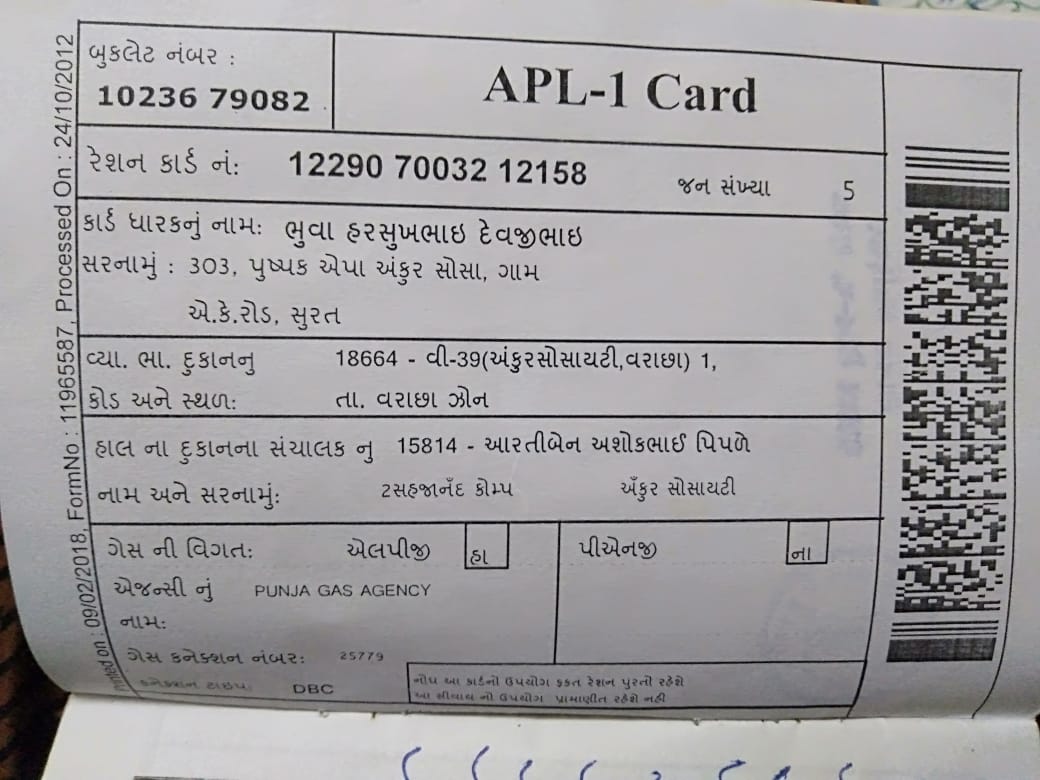 બુકલેટ નંબર :
10236 79082
APL-1 Card
રેશન કાર્ડ નં: 12290 70032 12158 જન સંખ્યા 5
કાર્ડ ધારકનું નામ: ભુવા હરસુખભાઇ દેવજીભાઇ
સરનામું : 303, પુષ્પક એપા અંકુર સોસા, ગામ
એ.કે.રોડ, સુરત
વ્યા. ભા. દુકાનનુ 18664 - વી-39(અંકુરસોસાયટી,વરાછા) 1,
કોડ અને સ્થળ: તા. વરાછા ઝોન
હાલ ના દુકાનના સંચાલક નુ 15814 - આરતીબેન અશોકભાઈ પિપળે
નામ અને સરનામું: 2સહજાનઁદ કોમ્પ અઁકુર સોસાયટી
ગેસ ની વિગત: એલપીજી હા પીએનજી ના
એજન્સી નું PUNJA GAS AGENCY
નામ:
ગેસ કનેક્શન નંબર: 25779
કનેક્શન ટાઇપ: DBC
નોંધ આ કાર્ડનો ઉપયોગ ફક્ત રેશન પુરતો રહેશે
આ સીવાય નો ઉપયોગ પ્રામાણીત રહેશે નહી
Printed on : 09/02/2018, FormNo : 11965587, Processed On : 24/10/2012